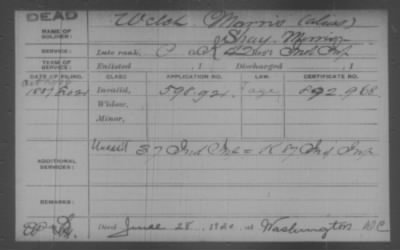 DEAD
NAME OF SOLDIER: Welsh Morris (alias)
Shay, Morris
SERVICE: Late rank, Ind Inf
TERM OF SERVICE: Enlisted , 1 Discharged , 1
DATE OF FILING. CLASS. APPLICATION NO. LAW. CERTIFICATE NO.
1887 Invalid, 598.921. 892.968
Widow,
Minor,
ADDITIONAL SERVICES: 37 Ind Inf = K 87 Ind Inf
REMARKS:
Died June 28, 1920, at Washington DC